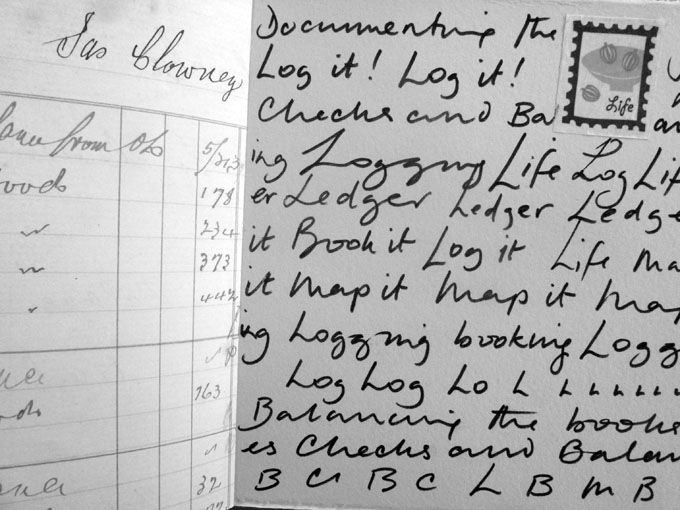 Jas Clowney
from
5/23
oods 178
" 234
" 373
" 442
163
32
Documenting the
Log it! Log it!
Checks and Ba
Life
ing Logging Life Log Lif
er Ledger Ledger Ledge
it Book it Log it Life Ma
it Map it Map it Map
ing Logging booking Logg
Log Log Lo L L L L L L L
Balancing the books
es Checks and Balan
B C B C L B M B